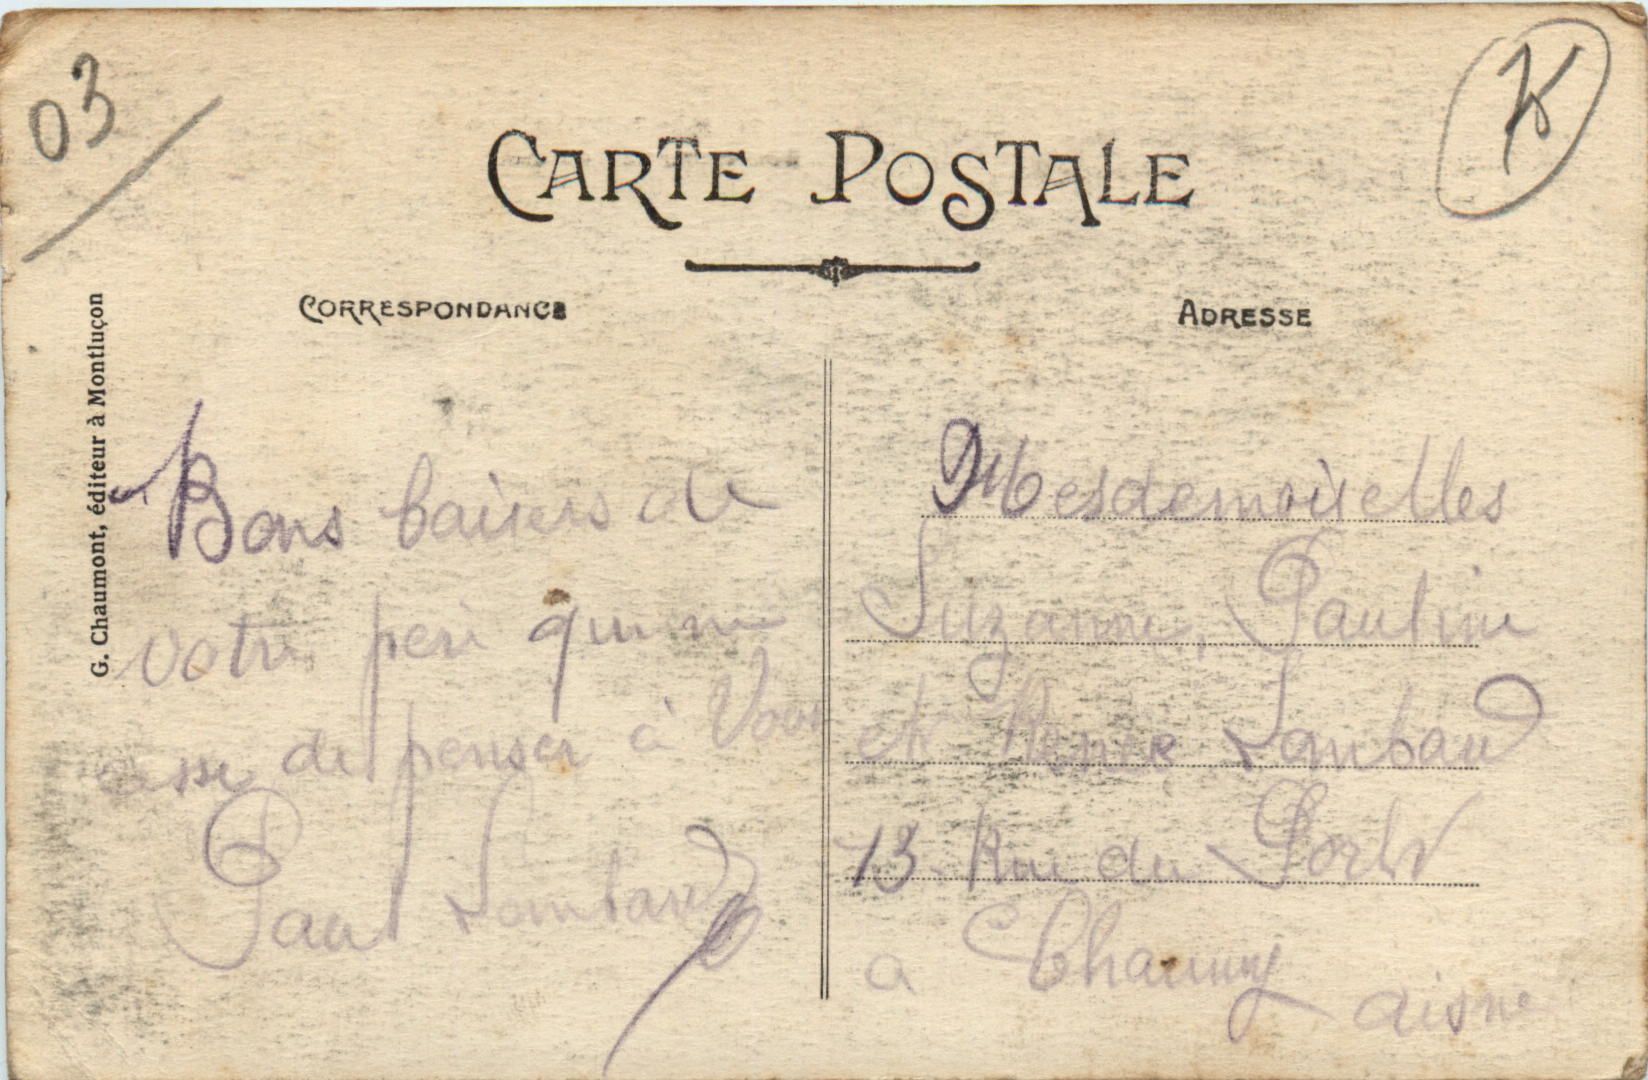 03
K
CARTE POSTALE
CORRESPONDANCE
ADRESSE
G. Chaumont, éditeur à Montluçon
Bons baisers de
votre père qui ne
cesse de penser à Vous
Paul Lambaud
Mesdemoiselles
Suzanne, Pauline
et Renée Lambaud
13 Rue du Port
a Chauny
aisne